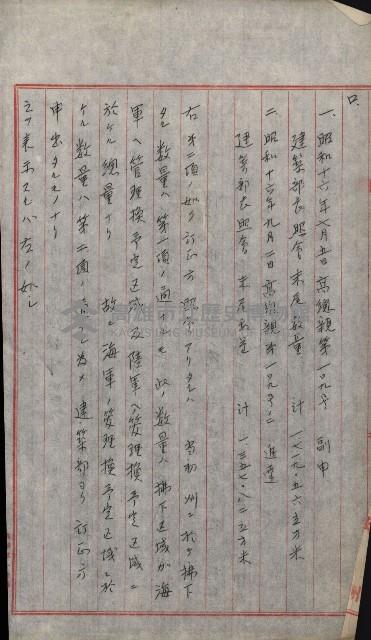 一、昭和十六年八月五日高總親第一〇九号 副申
建築部長照會末尾ノ数量 計 一七一九・五六立方米
二、昭和十六年九月二日高總親第一〇九号ノ二 進達
建築部長照會 末尾数量 計 一三五七・八二立方米
右第二項ノ如ク訂正方 アリタルハ 当初州ニ於テ拂下
タル数量ハ第一項ノ通ナルモ 此ノ数量ハ拂下区域ガ海
軍ヘ管理換予定区域及陸軍ヘ管理換予定区域ニ
於ケル總量ナリ 故ニ海軍ノ管理換予定区域ニ於
ケル数量ハ第二項ノ 為メ建築部ヨリ訂正方
申出タルモノナリ
表示スレハ左ノ如シ
高雄市立歷史博物館
KAOHSIUNG MUSEUM
州